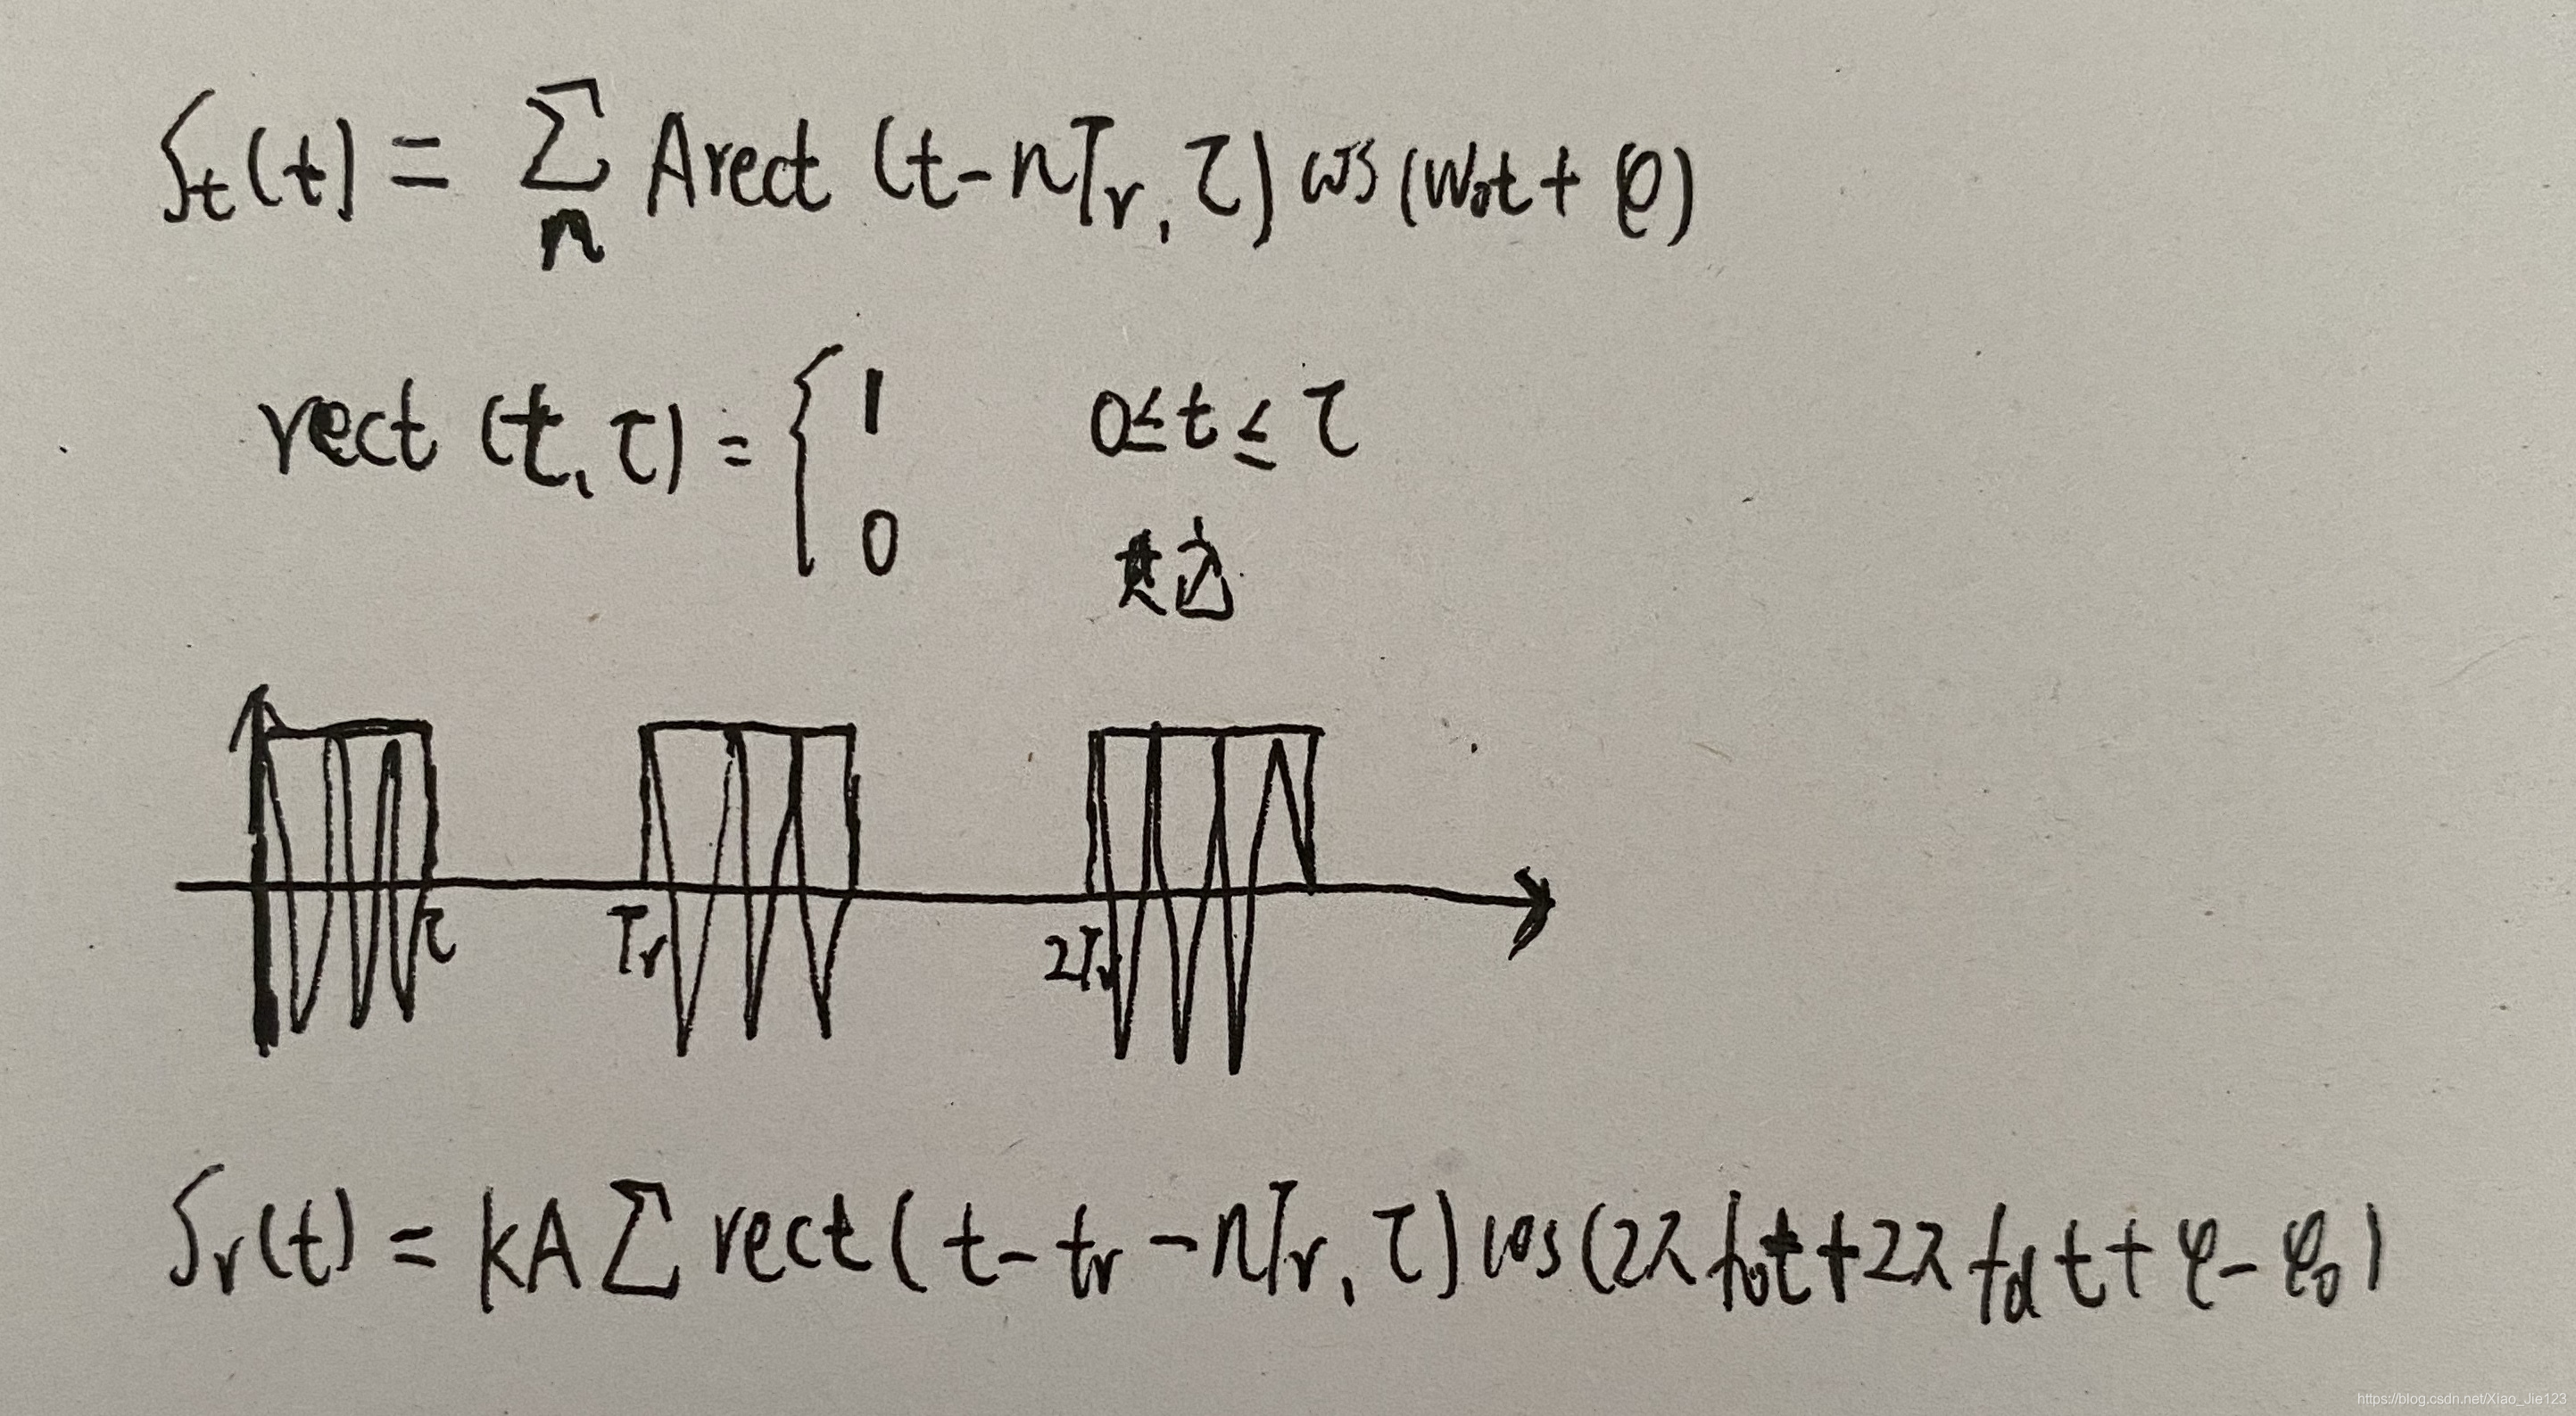 St(t) = Σ Arect (t-nTr, τ) cos(w₀t + φ)
n
rect (t, τ) = { 1 0≤t≤τ
0 其他
τ Tr 2Tr
Sr(t) = kA Σ rect(t-tr-nTr, τ) cos(2πf₀t+2πfdt+φ-φ₀)
https://blog.csdn.net/Xiao_Jie123